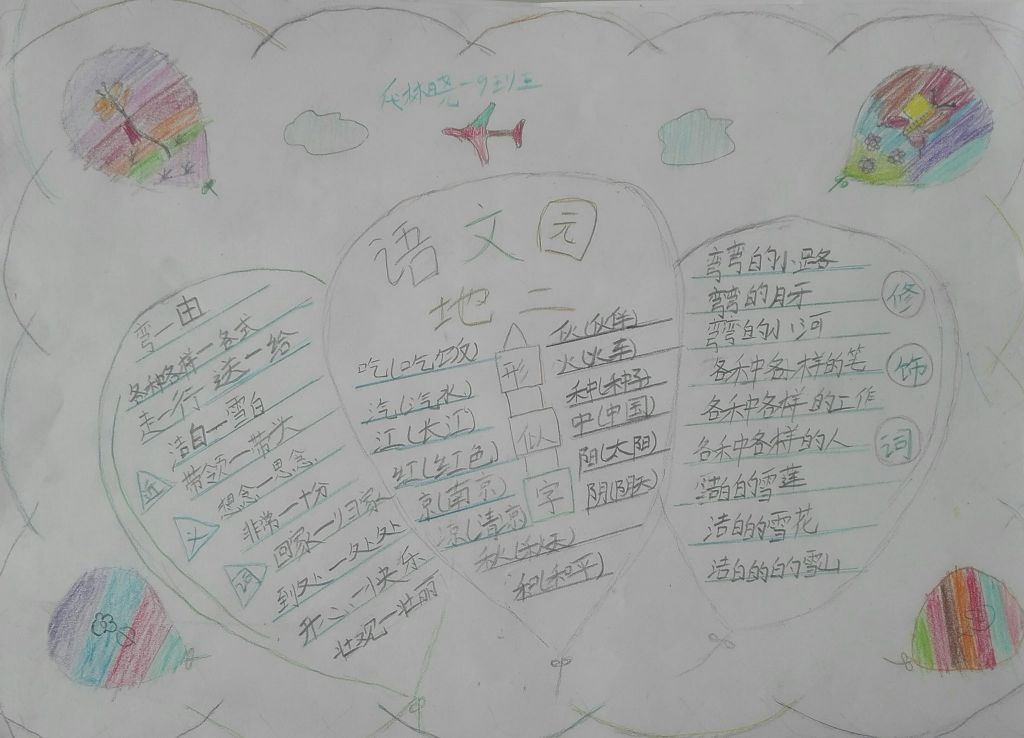 林晓一9班
语文园
地二
弯一曲
各种各样一各式
走一行 送一给
洁白一雪白
带领一带头
想念一思念
非常一十分
回家一归家
到处一处处
开心一快乐
壮观一壮丽
近
义
词
吃(吃饭)
汽(汽水)
江(长江)
红(红色)
京(南京)
凉(清凉)
秋(秋天)
和(和平)
形
似
字
伙(伙伴)
火(火车)
种(种子)
中(中国)
阳(太阳)
阴(阴天)
弯弯的小路
弯弯的月牙
弯弯的小河
各种各样的笔
各种各样的工作
各种各样的人
洁白的雪莲
洁白的雪花
洁白的的雪山
修
饰
词